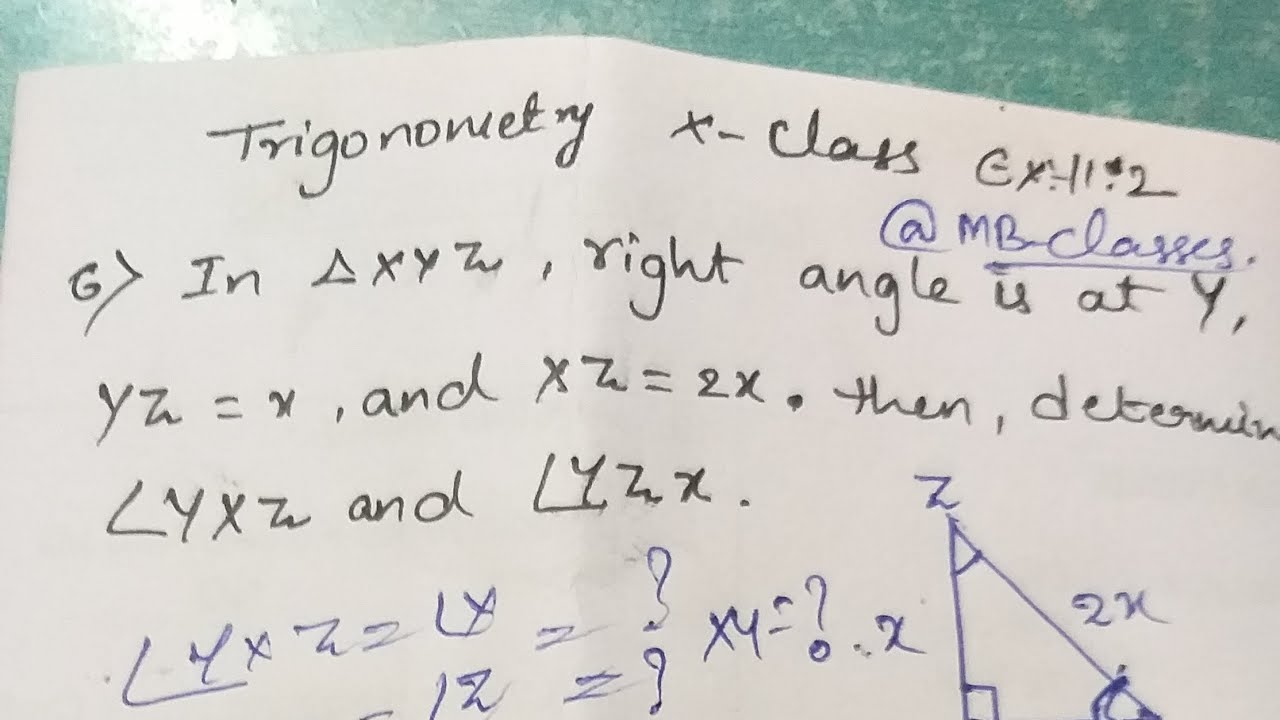 Trigonometry x-class Ex:-11.2
@MB-classes.
6) In △XYZ, right angle is at Y,
YZ = x, and XZ = 2x. then, determin
∠YXZ and ∠YZX.
Z
∠YXZ = ∠X = ? XY = ?
x 2x
= ∠Z = ?